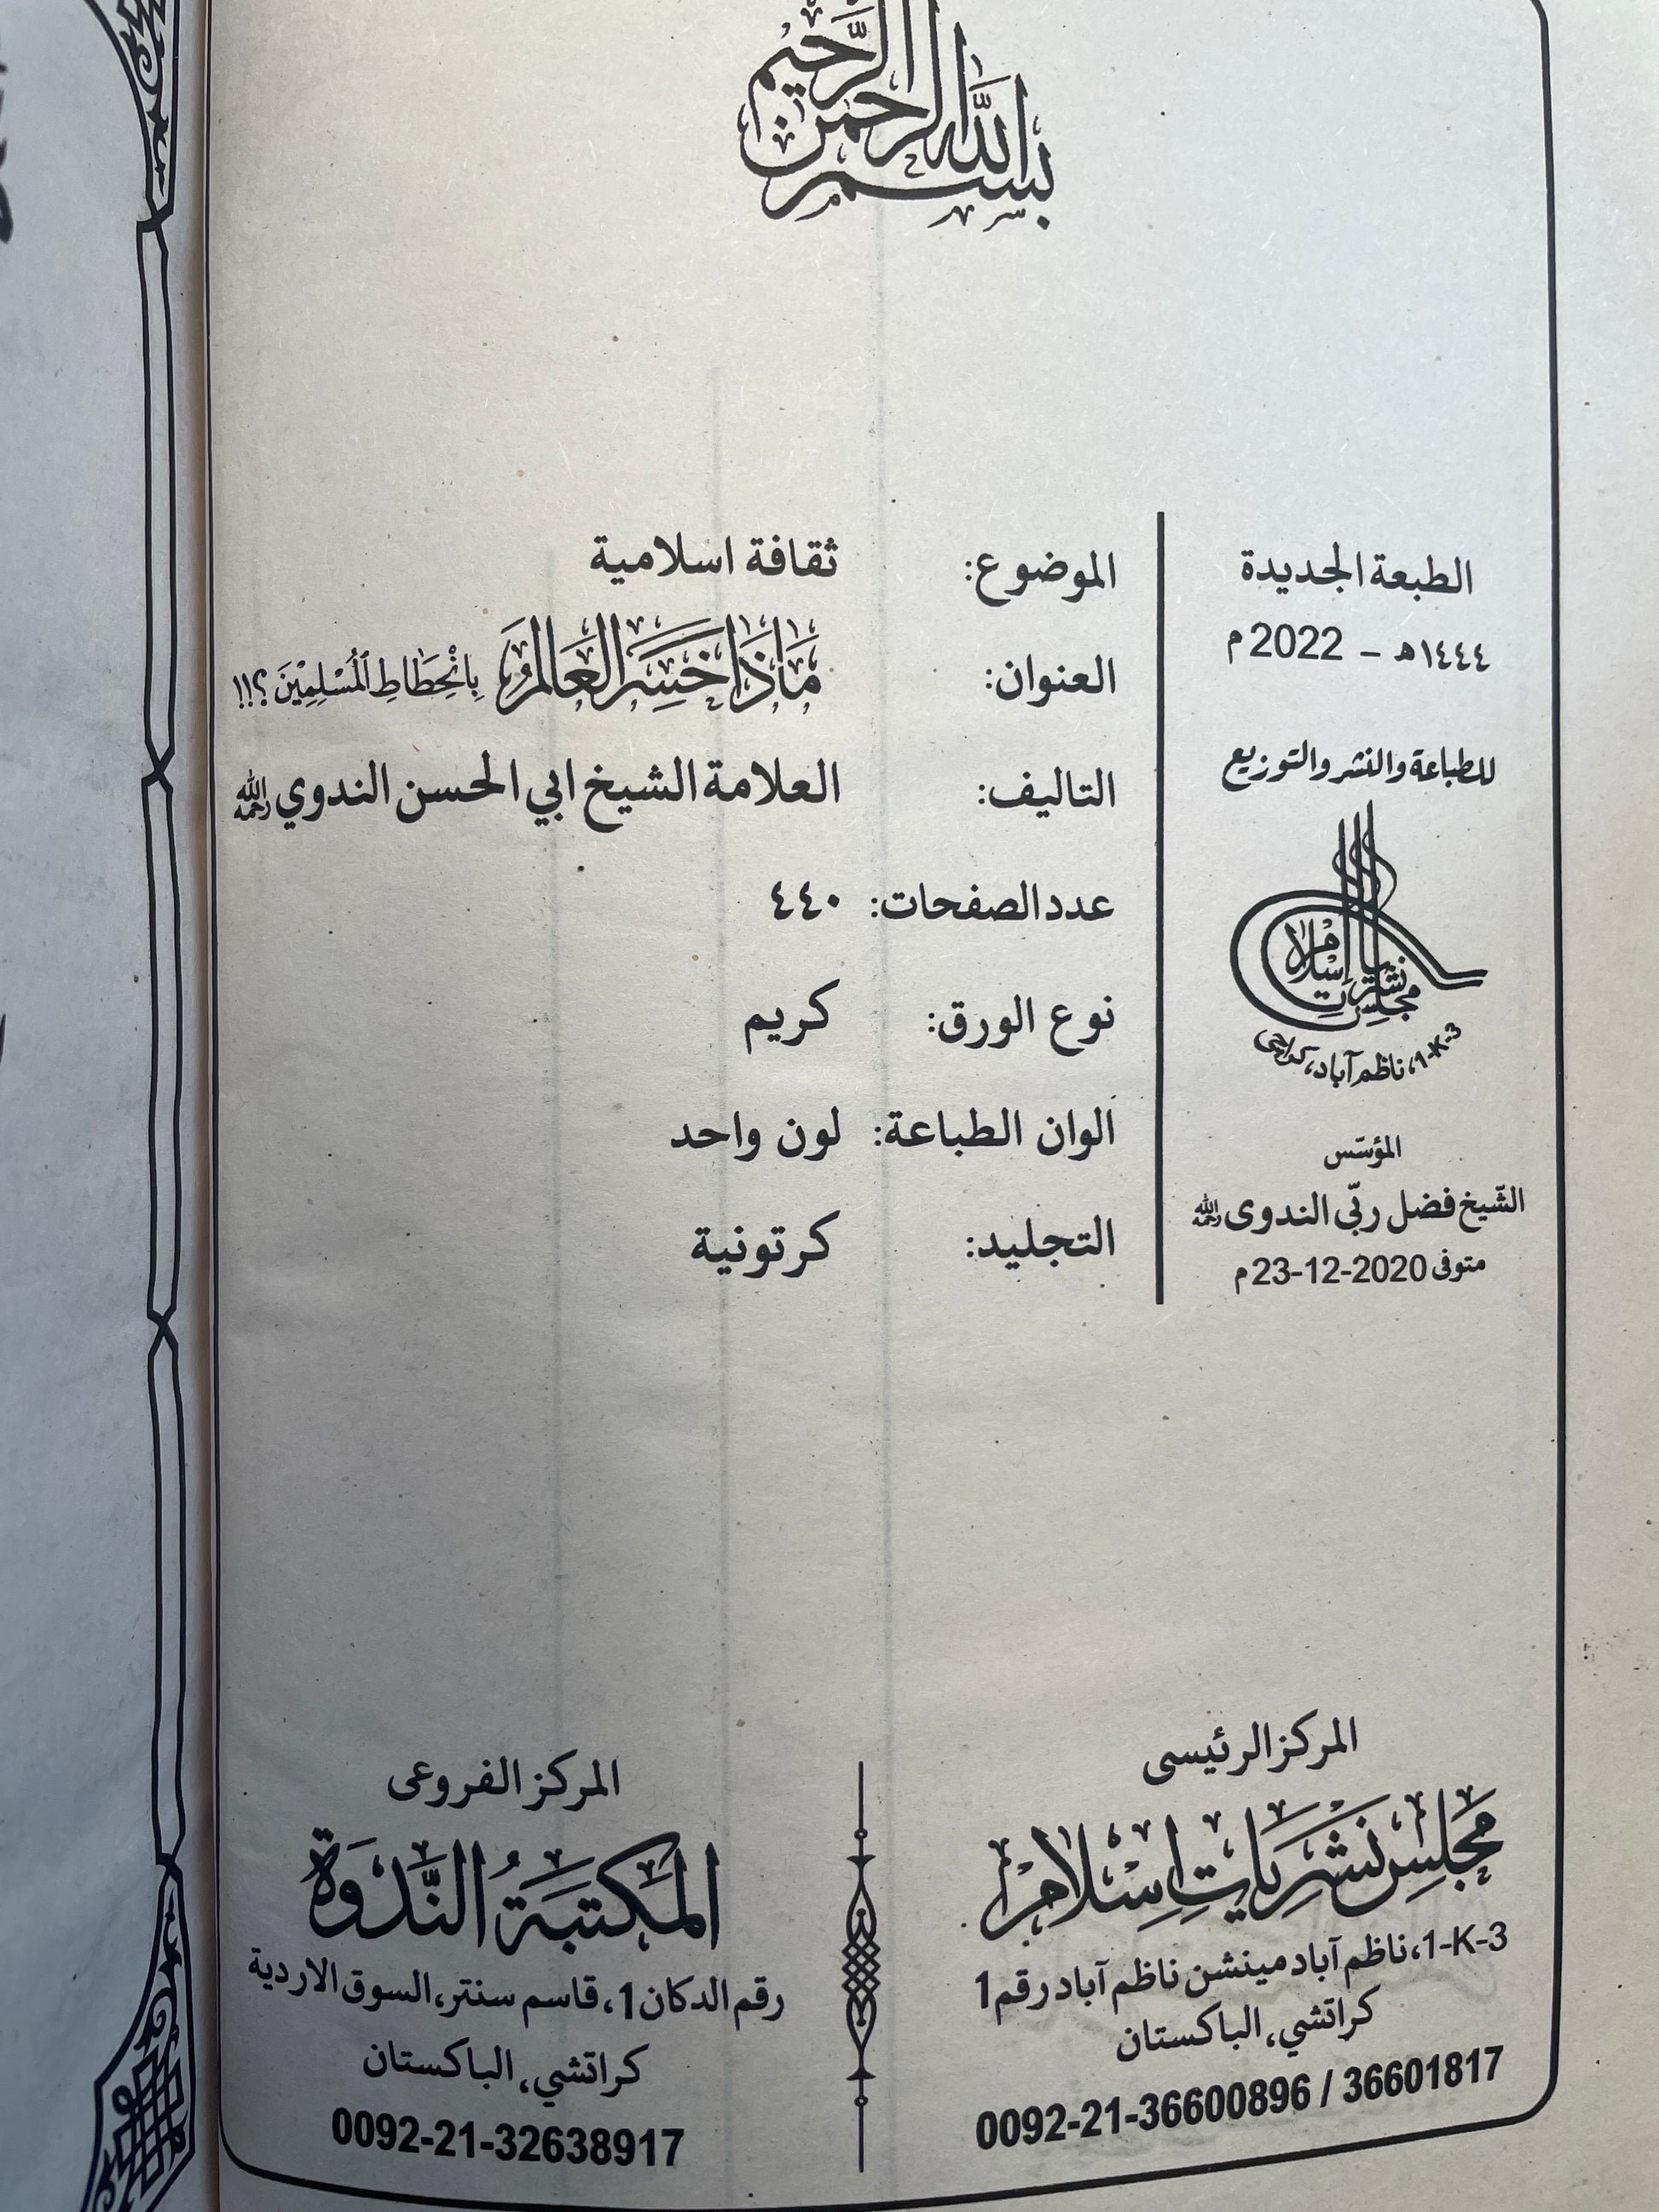 بسم الله الرحمن الرحيم
الطبعة الجديدة
١٤٤٤ه – 2022 م
للطباعة والنشر والتوزيع
مجلس نشريات اسلام
1-K-3، ناظم آباد، کراچی
المؤسّس
الشّيخ فضل ربّی الندوی رحمه الله
متوفی 23-12-2020 م
الموضوع: ثقافة اسلامية
العنوان: مَاذَا خَسِرَ العَالَمُ بِانْحِطَاطِ الْمُسْلِمِيْنَ؟!!
التاليف: العلامة الشيخ ابي الحسن الندوي رحمه الله
عدد الصفحات: ٤٤٠
نوع الورق: كريم
الوان الطباعة: لون واحد
التجليد: كرتونية
المركز الرئيسی
مجلس نشریات اسلام
1-K-3، ناظم آباد مينشن ناظم آباد رقم 1
كراتشي، الباكستان
0092-21-36600896 / 36601817
المركز الفروعی
المَكتبَةُ النَّدْوَة
رقم الدكان 1، قاسم سنتر، السوق الاردية
كراتشي، الباكستان
0092-21-32638917